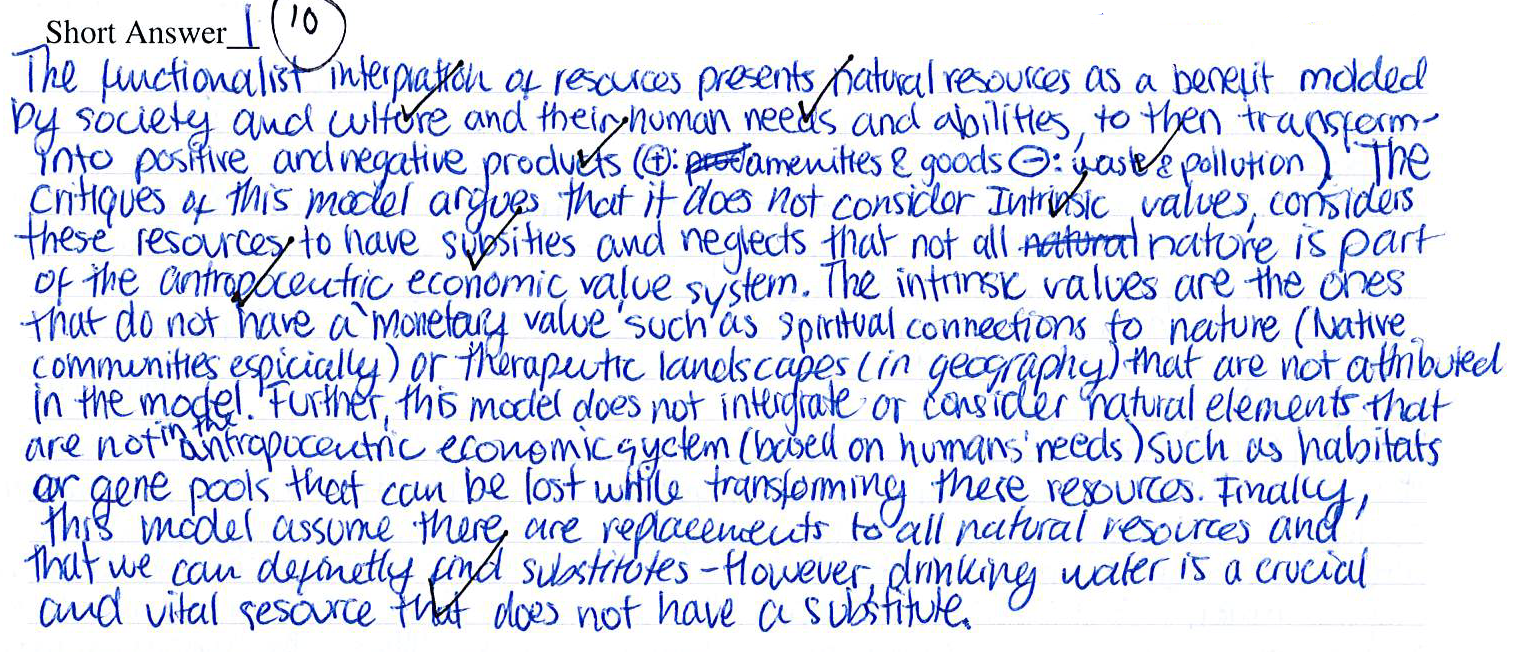 Short Answer 1 10
The functionalist interpration of resources presents natural resources as a benefit molded
by society and culture and their human needs and abilities, to then transform
into positive and negative products (⊕: prod amenities & goods ⊖: waste & pollution). The
critiques of this model argues that it does not consider Intrinsic values, considers
these resources to have subsities and neglects that not all natural nature is part
of the antropocentric economic value system. The intrinsic values are the ones
that do not have a "monetary value" such as spiritual connections to nature (Native
communities espicially) or therapeutic landscapes (in geography) that are not attributed
in the model. Further, this model does not intergrate or consider natural elements that
are not in the antropocentric economic syctem (based on humans' needs) such as habitats
or gene pools that can be lost while transforming these resources. Finally,
this model assume there are replacements to all natural resources and
that we can definetly find substitutes - However, drinking water is a crucial
and vital resource that does not have a substitute.